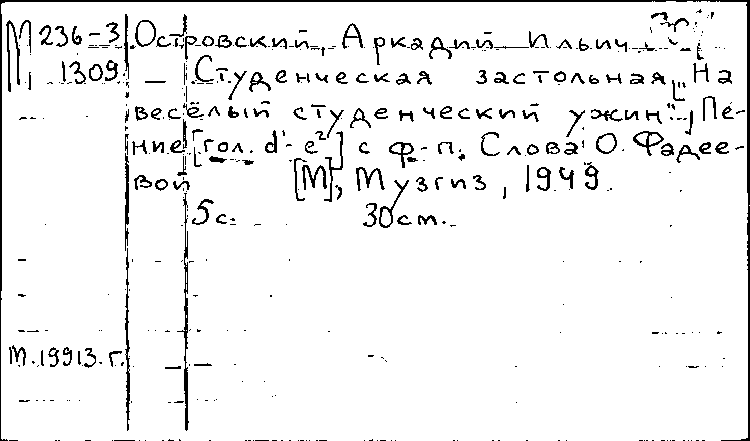 М 236-3 Островский, Аркадий Ильич
1309 — Студенческая застольная. ["На
весёлый студенческий ужин"], Пе-
ние [гол. d¹-e²] с ф-п. Слова О. Фадее-
вой [М], Музгиз, 1949.
5с. 30см.
М.19913.г.